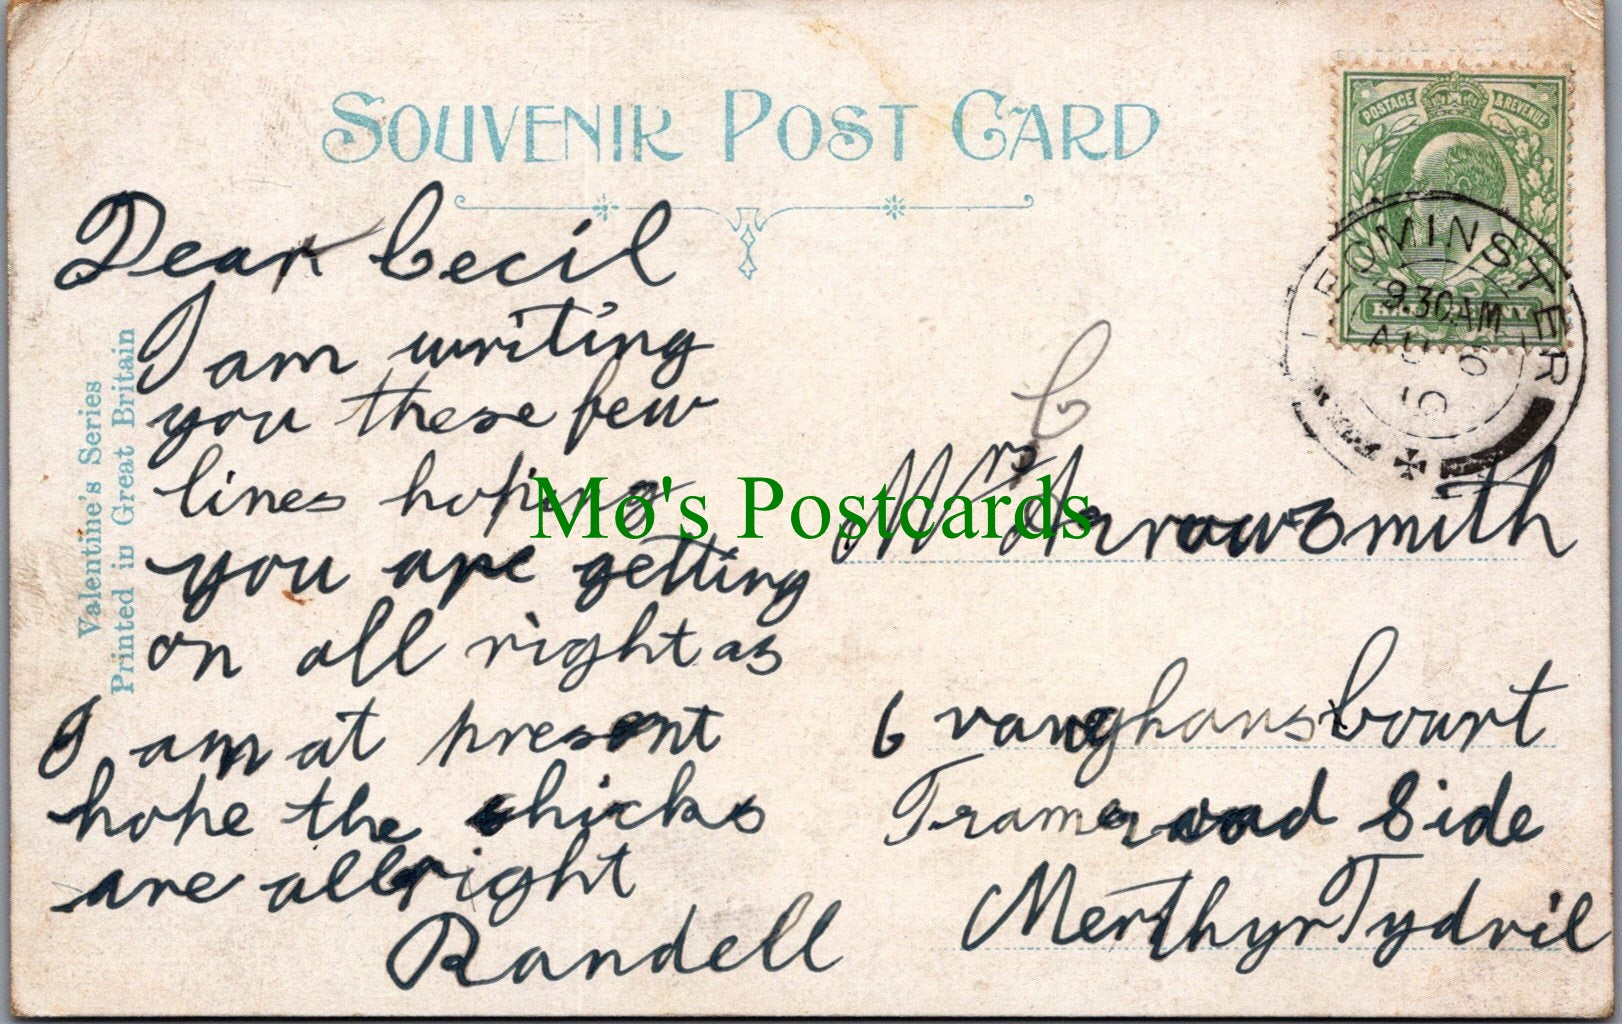 SOUVENIR POST CARD
POSTAGE & REVENUE
LEOMINSTER
9.30AM
AU 6
10
Valentine's Series
Printed in Great Britain
Dear Cecil
I am writing
you these few
lines hoping
you are getting
on all right as
I am at present
hope the chicks
are allright
Randell
C
Mrs Arrowsmith
6 vaughans Court
Tramroad Side
Merthyr Tydvil
Mo's Postcards